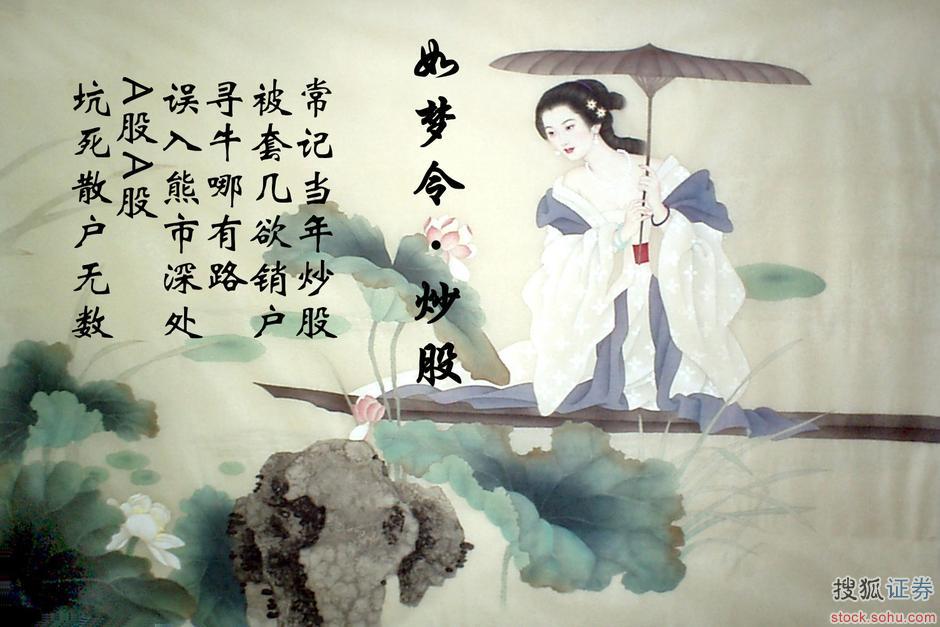 如梦令·炒股
常记当年炒股
被套几欲销户
寻牛哪有路
误入熊市深处
A股A股
坑死散户无数
搜狐证券
stock.sohu.com